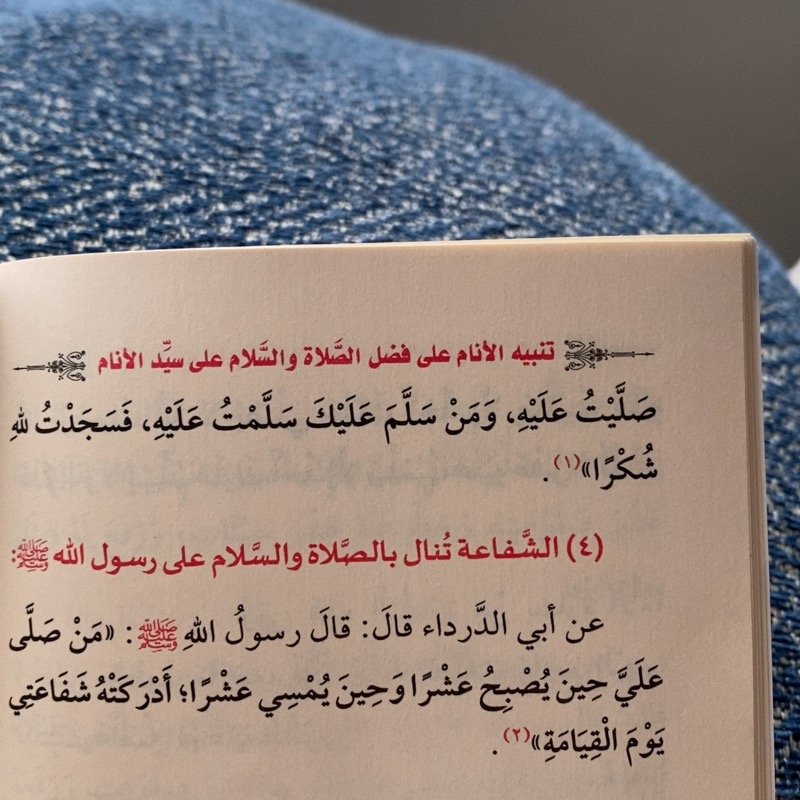 تنبيه الأنام على فضل الصَّلاة والسَّلام على سيِّد الأنام
صَلَّيْتُ عَلَيْهِ، وَمَنْ سَلَّمَ عَلَيْكَ سَلَّمْتُ عَلَيْهِ، فَسَجَدْتُ للهِ
شُكْرًا»(١).
(٤) الشَّفاعة تُنال بالصَّلاة والسَّلام على رسول الله ﷺ:
عن أبي الدَّرداء قالَ: قالَ رسولُ اللهِ ﷺ: «مَنْ صَلَّى
عَلَيَّ حِينَ يُصْبِحُ عَشْرًا وَحِينَ يُمْسِي عَشْرًا؛ أَدْرَكَتْهُ شَفَاعَتِي
يَوْمَ الْقِيَامَةِ»(٢).